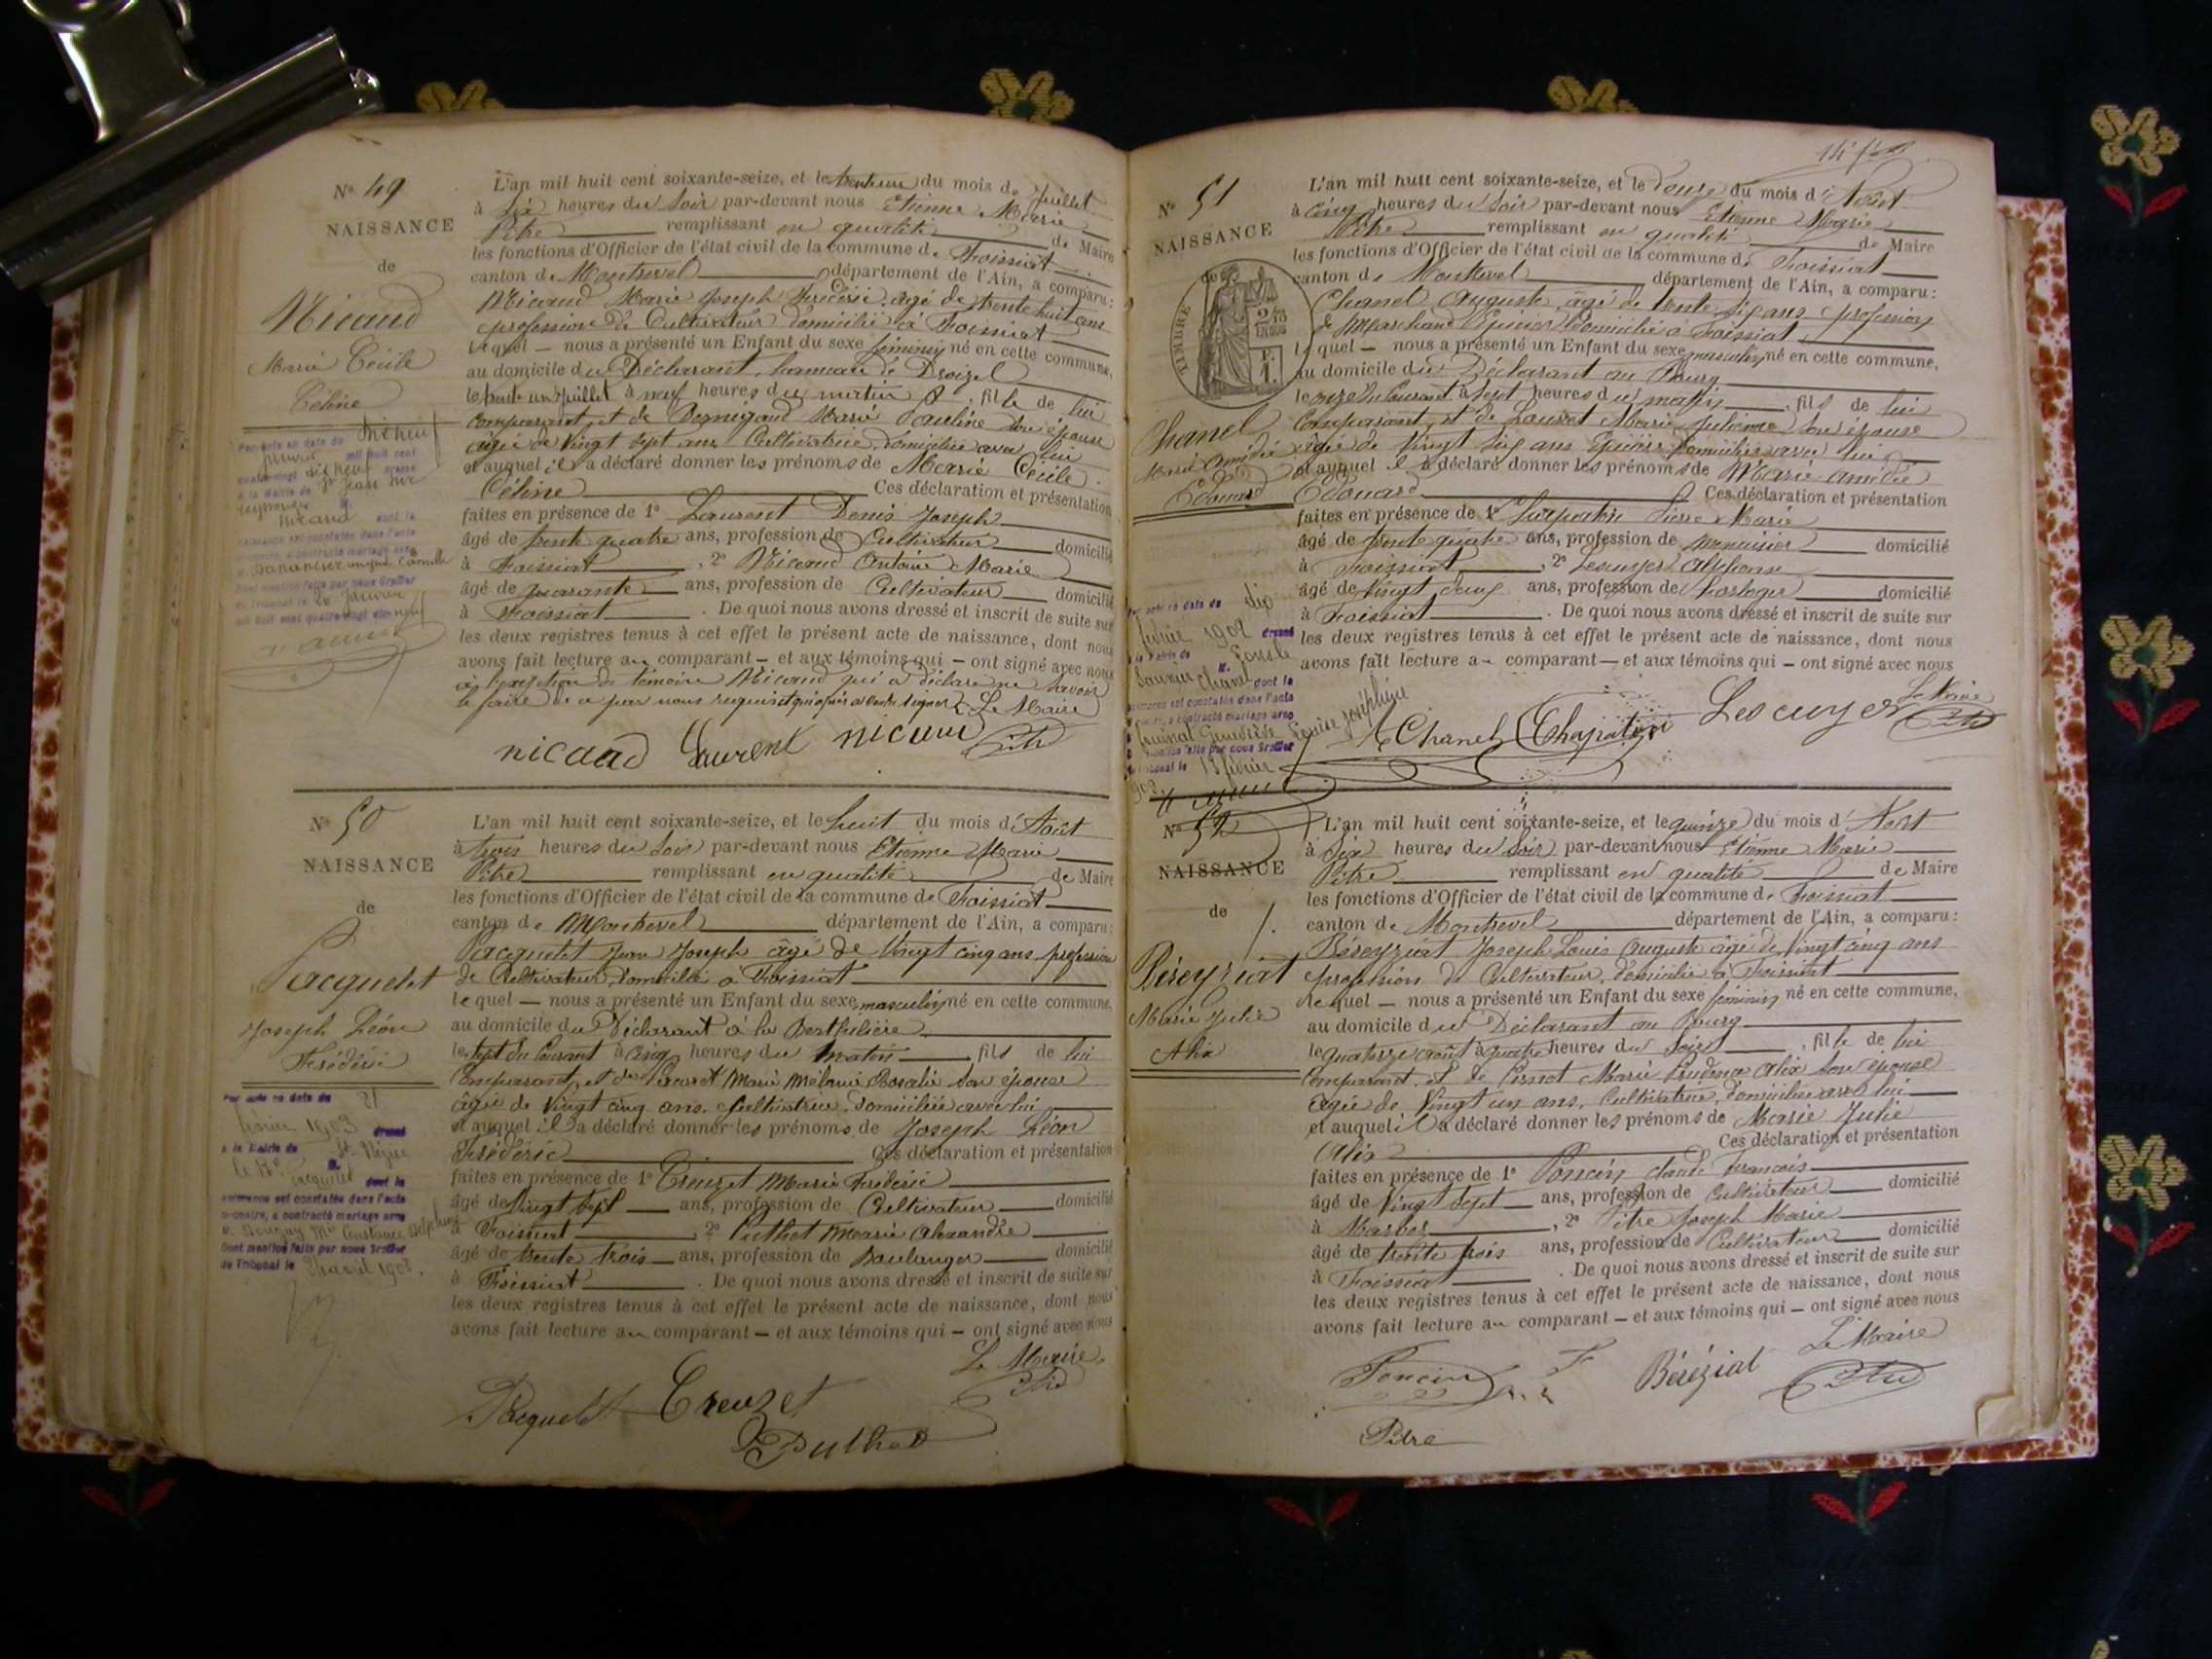 N° 49
NAISSANCE
de
Nicaud
Marie Cécile
Céline
L'an mil huit cent soixante-seize, et le trente un du mois de Juillet
à six heures du soir par-devant nous Etienne Marie
Pitre remplissant en qualité de Maire
les fonctions d'Officier de l'état civil de la commune de Foissiat
canton de Montrevel département de l'Ain, a comparu:
Nicaud Marie Joseph Frédéric, âgé de trente huit ans
profession de Cultivateur domicilié à Foissiat
lequel — nous a présenté un Enfant du sexe féminin né en cette commune,
au domicile du Déclarant, hameau de
le trente un Juillet à neuf heures du matin, fille de lui
comparant, et de Marie Pauline son épouse
âgée de vingt sept ans Cultivatrice, domiciliée avec lui
et auquel il a déclaré donner les prénoms de Marie Cécile
Céline Ces déclaration et présentation
faites en présence de 1° Laurent Denis Joseph
âgé de trente quatre ans, profession de Cultivateur domicilié
à Foissiat, 2° Nicaud Antoine Marie
âgé de quarante ans, profession de Cultivateur domicilié
à Foissiat. De quoi nous avons dressé et inscrit de suite sur
les deux registres tenus à cet effet le présent acte de naissance, dont nous
avons fait lecture au comparant — et aux témoins qui — ont signé avec nous
à l'exception du témoin Nicaud qui a déclaré ne savoir
le faire de ce par nous requis Le Maire
nicaud Laurent nicaud Pitre
Par acte en date du dixneuf
janvier mil huit cent
quatre-vingt dixneuf dressé
à la Mairie de St Jean sur
Reyssouze
Nicaud dont la
naissance est constatée dans l'acte
ci-contre, a contracté mariage avec
Camille
Dont mention faite par nous Greffier
du Tribunal le janvier
mil huit cent quatre-vingt dix-neuf
N° 50
NAISSANCE
de
Pacquelet
Joseph Léon
Frédéric
L'an mil huit cent soixante-seize, et le huit du mois d'Août
à trois heures du soir par-devant nous Etienne Marie
Pitre remplissant en qualité de Maire
les fonctions d'Officier de l'état civil de la commune de Foissiat
canton de Montrevel département de l'Ain, a comparu:
Pacquelet Jean Joseph âgé de vingt cinq ans profession
de Cultivateur, domicilié à Foissiat
lequel — nous a présenté un Enfant du sexe masculin né en cette commune,
au domicile du Déclarant à la
le sept du courant à cinq heures du matin, fils de lui
comparant, et de Marie Mélanie Rosalie son épouse
âgée de vingt cinq ans, Cultivatrice, domiciliée avec lui
et auquel il a déclaré donner les prénoms de Joseph Léon
Frédéric Ces déclaration et présentation
faites en présence de 1° Creuzet Marie Frédéric
âgé de vingt sept ans, profession de Cultivateur domicilié
à Foissiat, 2° Puthet Marie Alexandre
âgé de trente trois ans, profession de Boulanger domicilié
à Foissiat. De quoi nous avons dressé et inscrit de suite sur
les deux registres tenus à cet effet le présent acte de naissance, dont nous
avons fait lecture au comparant — et aux témoins qui — ont signé avec nous
Le Maire
Pacquelet Creuzet Pitre
Puthet
Par acte en date du 21
1903 dressé
à la Mairie de St Nizier
le Bt M.
Pacquelet dont la
naissance est constatée dans l'acte
ci-contre, a contracté mariage avec
Constance
Dont mention faite par nous Greffier
du Tribunal le avril 1903.
N° 51
NAISSANCE
de
TIMBRE
2/10
EN SUS
Chanel
Marie Amédée
Edouard
L'an mil huit cent soixante-seize, et le douze du mois d'Août
à cinq heures du soir par-devant nous Etienne Marie
Pitre remplissant en qualité de Maire
les fonctions d'Officier de l'état civil de la commune de Foissiat
canton de Montrevel département de l'Ain, a comparu:
Chanel Auguste, âgé de trente six ans profession
de Marchand Epicier domicilié à Foissiat
lequel — nous a présenté un Enfant du sexe masculin né en cette commune,
au domicile du Déclarant au Bourg
le onze du courant à sept heures du matin, fils de lui
comparant, et de Marie Julienne son épouse
âgée de vingt six ans Epicière domiciliée avec lui
et auquel il a déclaré donner les prénoms de Marie Amédée
Edouard Ces déclaration et présentation
faites en présence de 1° Pierre Marie
âgé de trente quatre ans, profession de Menuisier domicilié
à Foissiat, 2° Lescuyer Alphonse
âgé de vingt deux ans, profession de horloger domicilié
à Foissiat. De quoi nous avons dressé et inscrit de suite sur
les deux registres tenus à cet effet le présent acte de naissance, dont nous
avons fait lecture au comparant — et aux témoins qui — ont signé avec nous
Le Maire
A Chanel Lescuyer Pitre
Par acte en date du dix
février 1902 dressé
à la Mairie de Lons le
Saunier M.
Chanel dont la
naissance est constatée dans l'acte
ci-contre, a contracté mariage avec
Geneviève Louise Joséphine
Dont mention faite par nous Greffier
du Tribunal le 13 février
1902
N° 52
NAISSANCE
de
Béreyziat
Marie Julie
Alix
L'an mil huit cent soixante-seize, et le quinze du mois d'Août
à six heures du soir par-devant nous Etienne Marie
Pitre remplissant en qualité de Maire
les fonctions d'Officier de l'état civil de la commune de Foissiat
canton de Montrevel département de l'Ain, a comparu:
Béreyziat Joseph Louis Auguste âgé de vingt cinq ans
profession de Cultivateur, domicilié à Foissiat
lequel — nous a présenté un Enfant du sexe féminin né en cette commune,
au domicile du Déclarant au Bourg
le quatorze août à quatre heures du soir, fille de lui
comparant, et de Marie Prudence Alix son épouse
âgée de vingt un ans, Cultivatrice, domiciliée avec lui
et auquel il a déclaré donner les prénoms de Marie Julie
Alix Ces déclaration et présentation
faites en présence de 1° Poncin Claude François
âgé de vingt sept ans, profession de Cultivateur domicilié
à Marboz, 2° Pitre Joseph Marie
âgé de trente trois ans, profession de Cultivateur domicilié
à Foissiat. De quoi nous avons dressé et inscrit de suite sur
les deux registres tenus à cet effet le présent acte de naissance, dont nous
avons fait lecture au comparant — et aux témoins qui — ont signé avec nous
Le Maire
Poncin Béréziat Pitre
Pitre